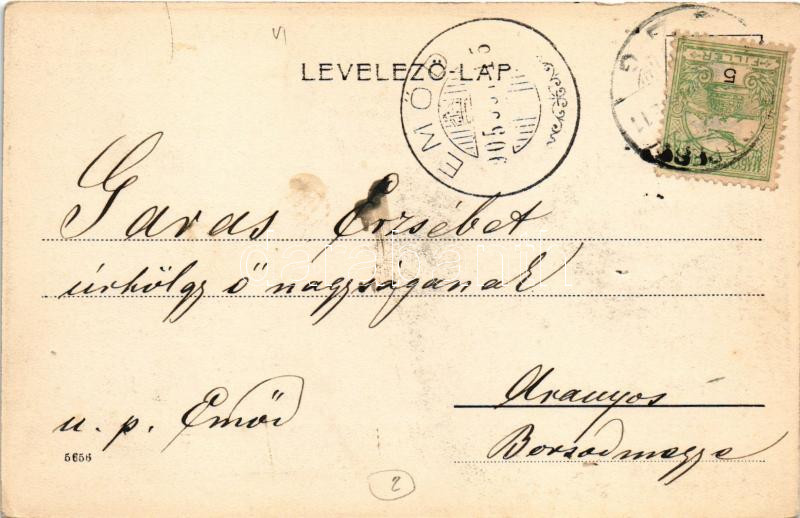 LEVELEZŐ-LAP
EMŐD
905
5
FILLÉR
Garas Erzsébet
úrhölgy ő nagyságának
Aranyos
u. p. Emőd
Borsodmegye
5656
2